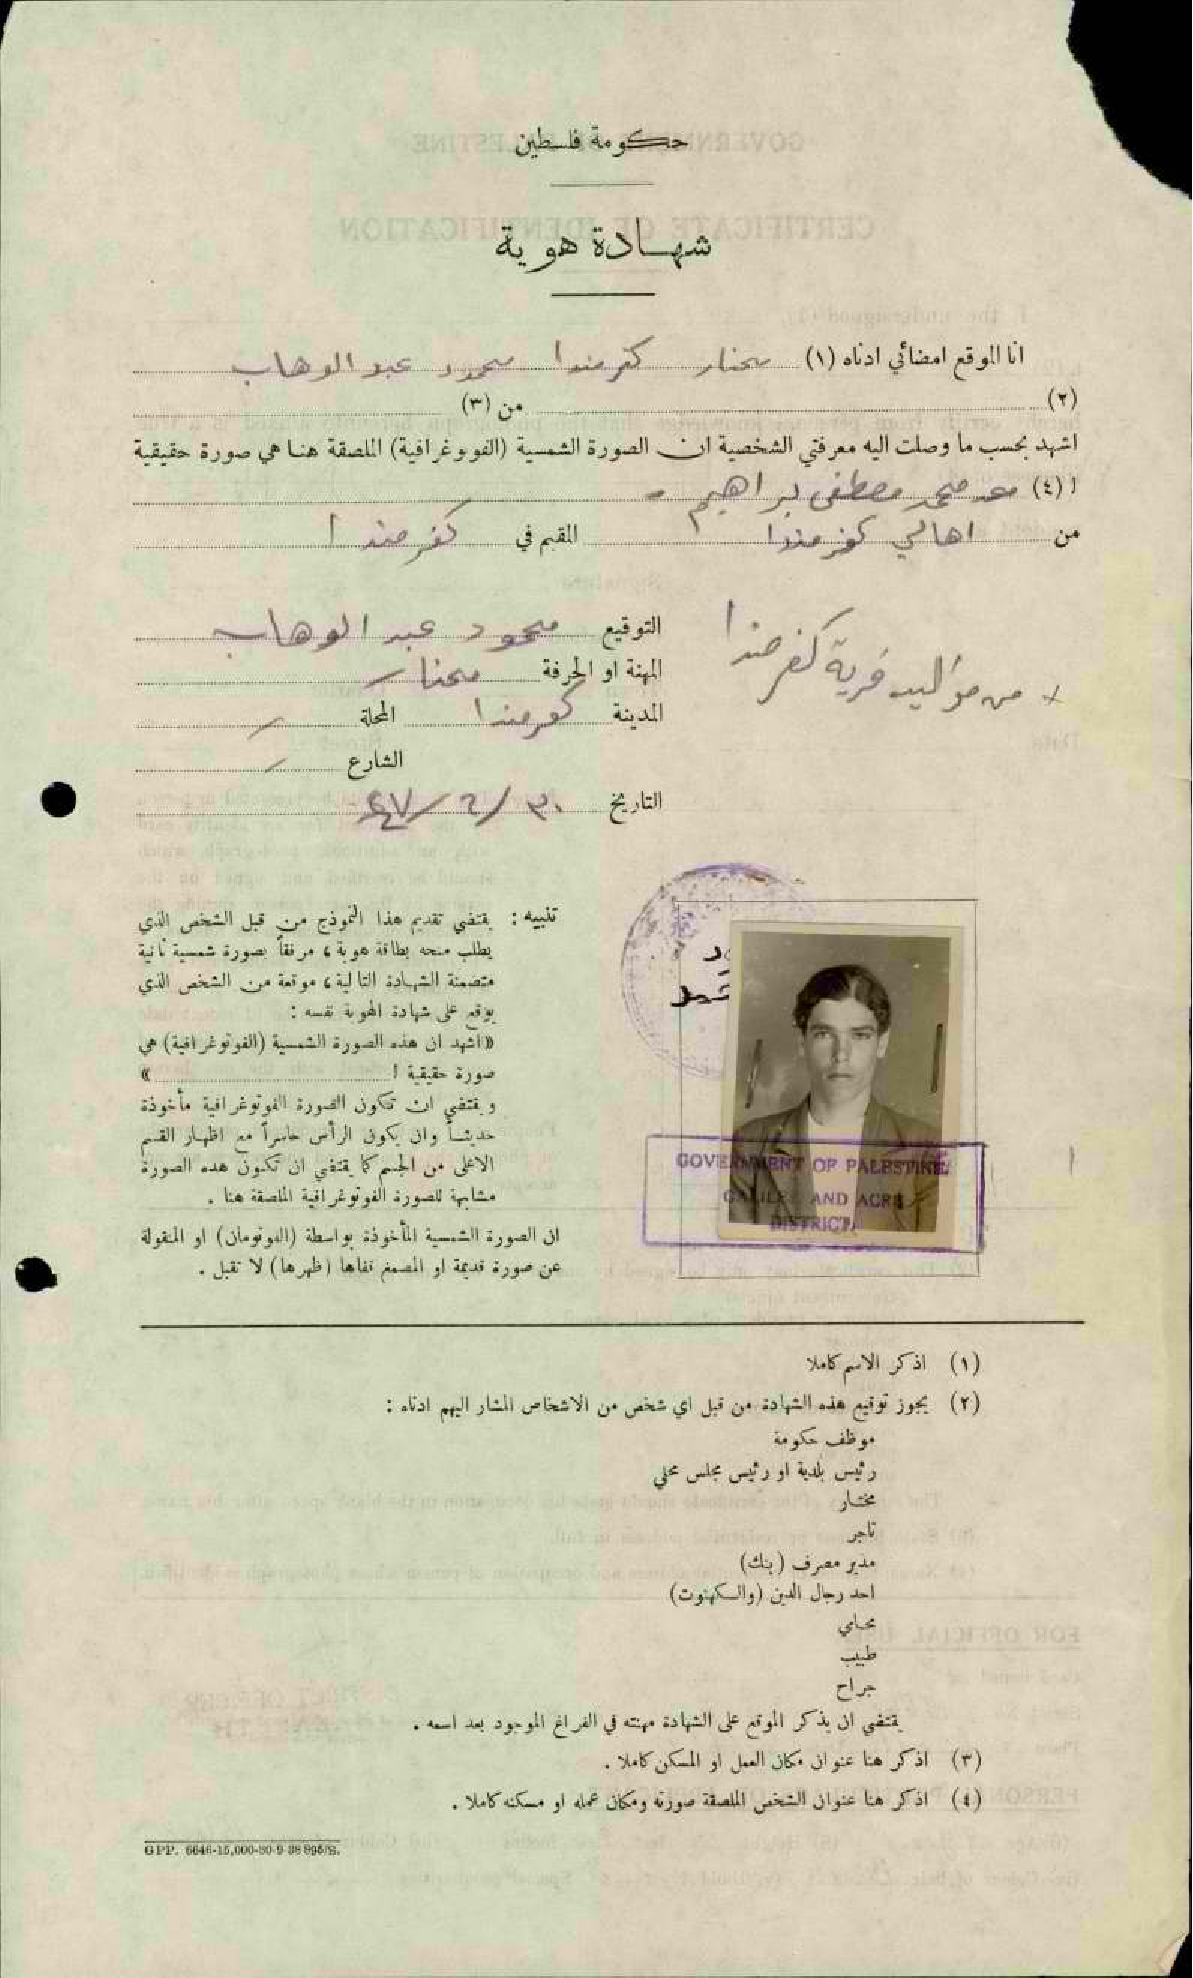 حكومة فلسطين
شهادة هوية
انا الموقع امضائي ادناه (١) مختار كفرمندا محمود عبد الوهاب
(٢) من (٣)
اشهد بحسب ما وصلت اليه معرفتي الشخصية ان الصورة الشمسية (الفوتوغرافية) الملصقة هنا هي صورة حقيقية
ا (٤) محمد مصطفى ابراهيم
من اهالي كفر مندا المقيم في كفر مندا
التوقيع محمود عبد الوهاب
المهنة او الحرفة مختار
المدينة كفر مندا المحلة
الشارع
التاريخ ٣٠/٦/٤٧
× من مواليد قرية كفر مندا
تنبيه : يقتضي تقديم هذا النموذج من قبل الشخص الذي
يطلب منحه بطاقة هوية ، مرفقاً بصورة شمسية ثانية
متضمنة الشهادة التالية ، موقعة من الشخص الذي
يوقع على شهادة الهوية نفسه :
«اشهد ان هذه الصورة الشمسية (الفوتوغرافية) هي
صورة حقيقية ا »
ويقتضي ان تكون الصورة الفوتوغرافية مأخوذة
حديثاً وان يكون الرأس حاسراً مع اظهار القسم
الاعلى من الجسم كما يقتضي ان تكون هذه الصورة
مشابهة للصورة الفوتوغرافية الملصقة هنا .
ان الصورة الشمسية المأخوذة بواسطة (الفوتومان) او المنقولة
عن صورة قديمة او المصمغ قفاها (ظهرها) لا تقبل .
GOVERNMENT OF PALESTINE
GALILEE AND ACRE
DISTRICT
(١) اذكر الاسم كاملا
(٢) يجوز توقيع هذه الشهادة من قبل اي شخص من الاشخاص المشار اليهم ادناه :
موظف حكومة
رئيس بلدية او رئيس مجلس محلي
مختار
تاجر
مدير مصرف (بنك)
احد رجال الدين (والكهنوت)
محامي
طبيب
جراح
يقتضي ان يذكر الموقع على الشهادة مهنته في الفراغ الموجود بعد اسمه .
(٣) اذكر هنا عنوان مكان العمل او المسكن كاملا .
(٤) اذكر هنا عنوان الشخص الملصقة صورته ومكان عمله او مسكنه كاملا .
GPP. 6646-15,000-30-9-38 895/S.